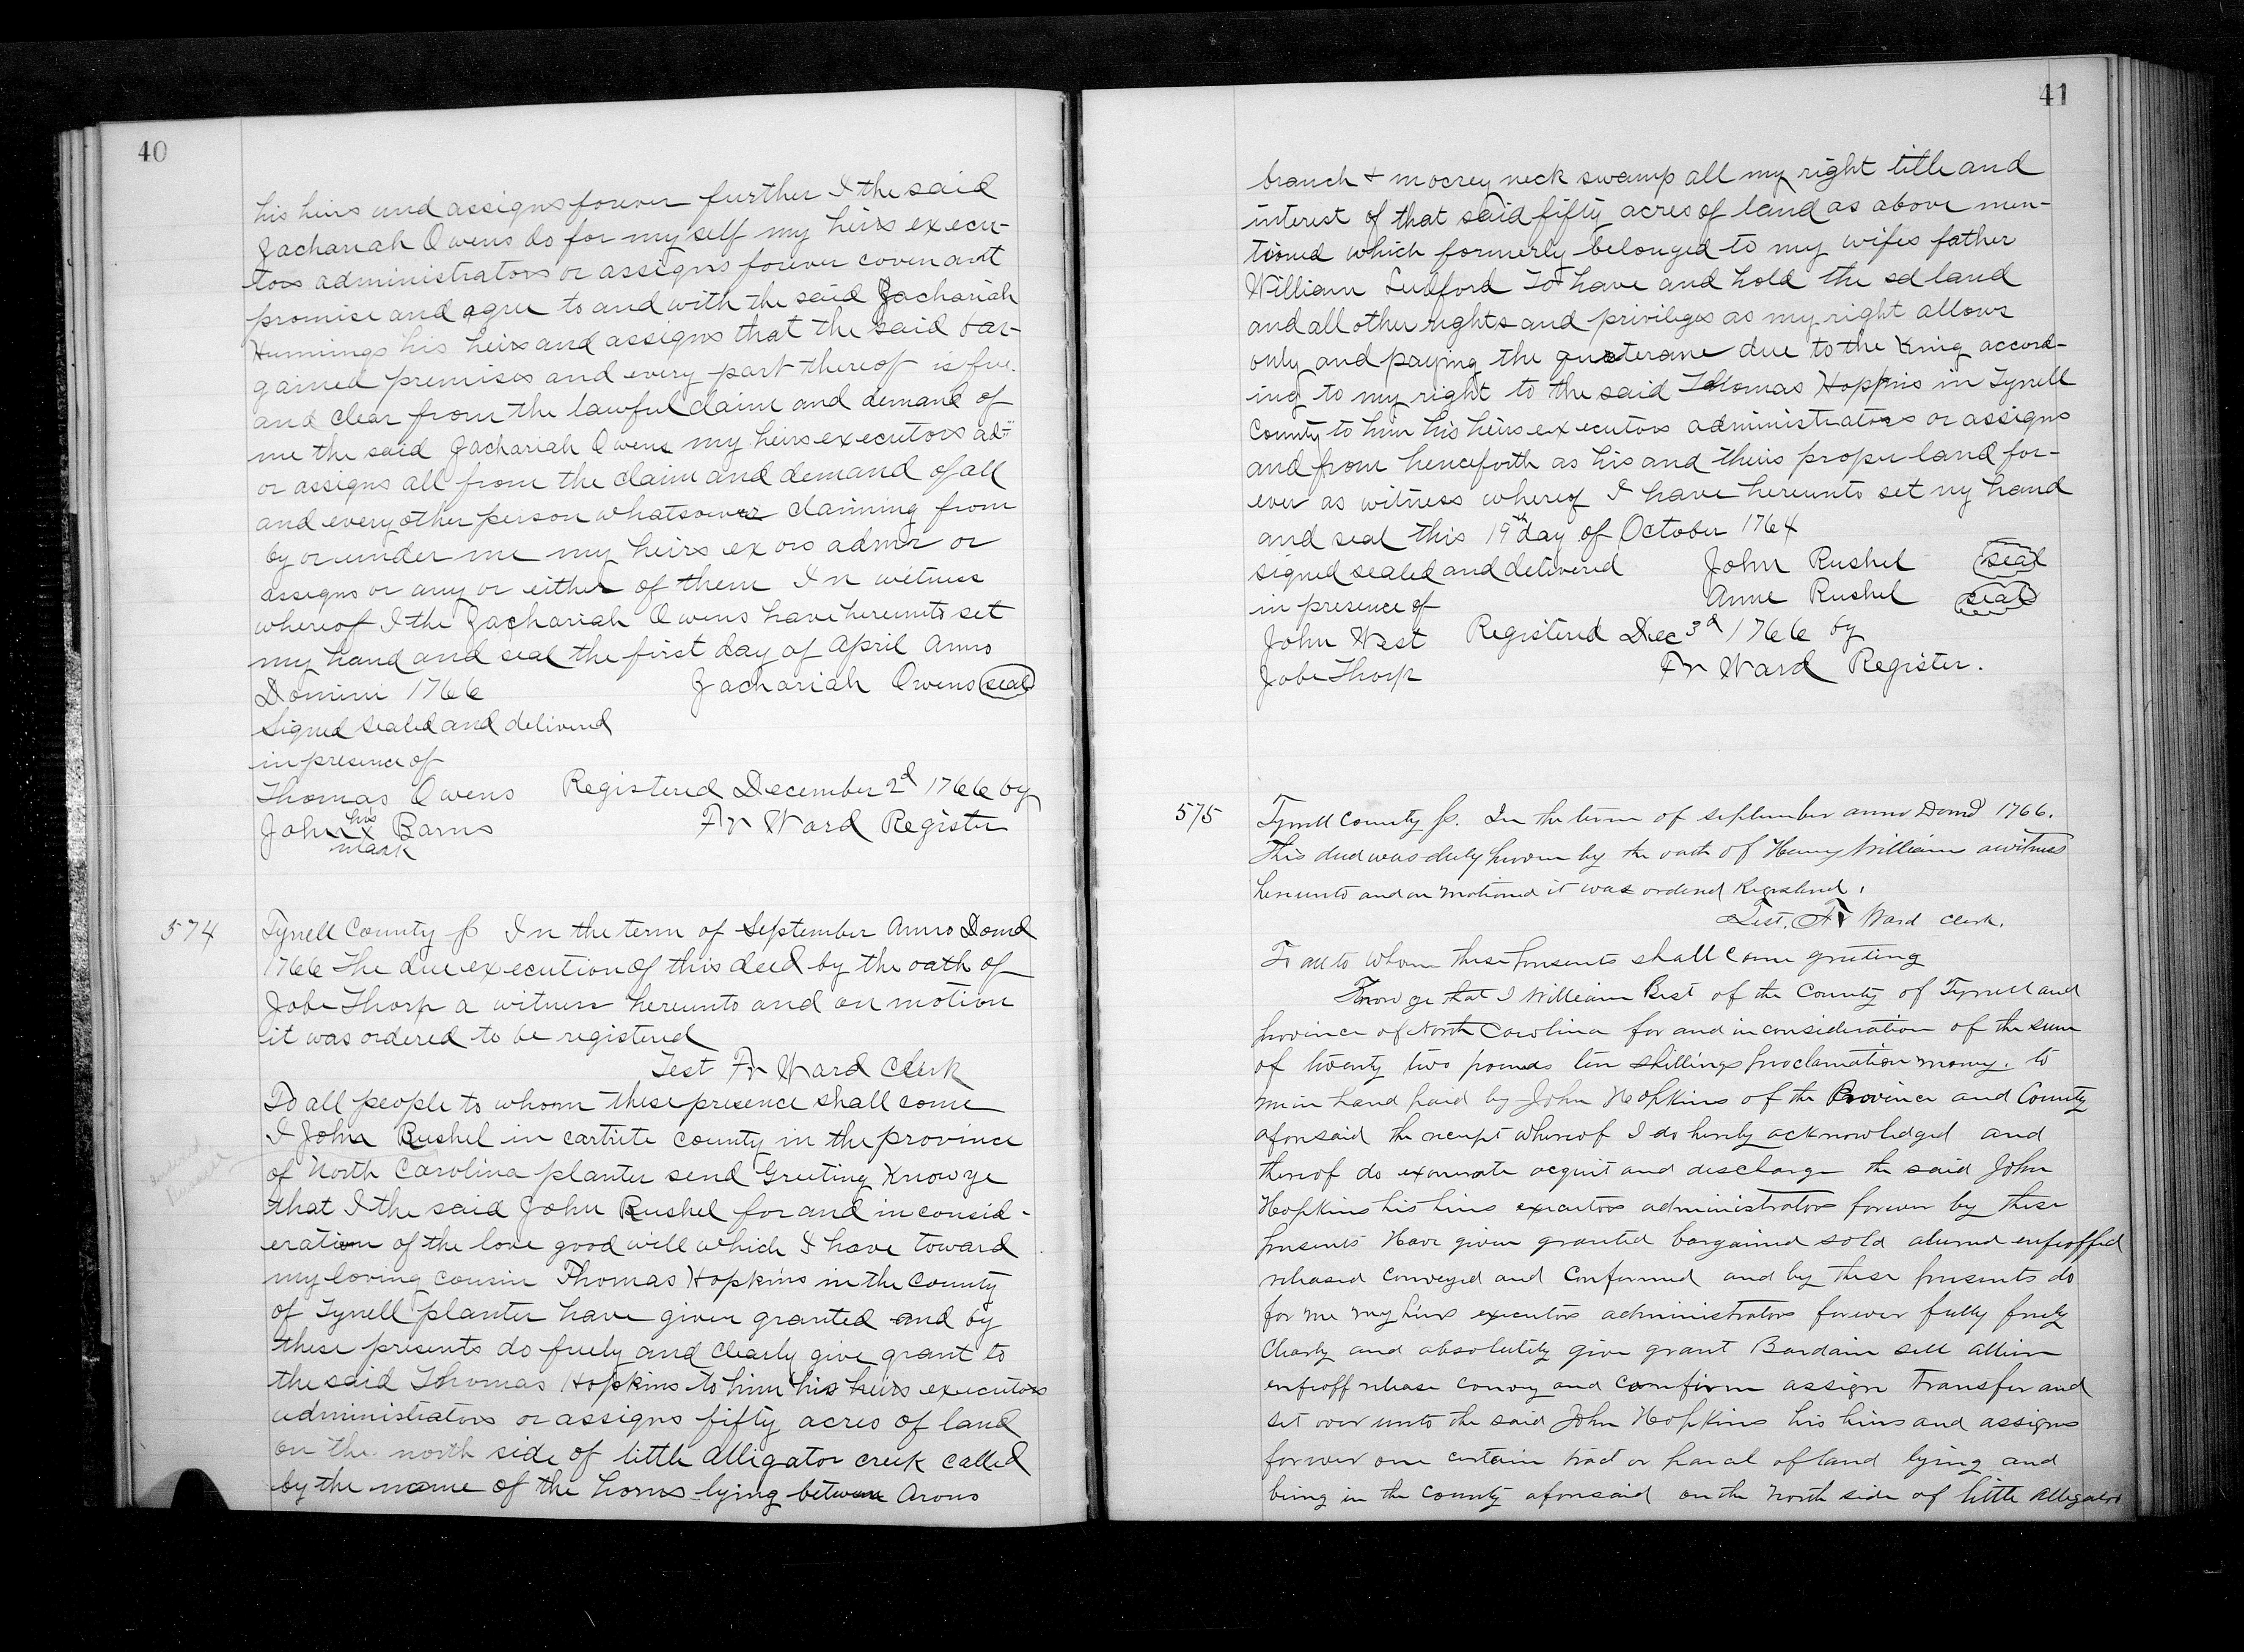 40
his heirs and assigns forever further I the said
Zachariah Owens do for my self my heirs execu-
tors administrators or assigns forever covenant
promise and agree to and with the said Zachariah
Hummings his heirs and assigns that the said bar-
gained premises and every part thereof is free
and clear from the lawful claim and demand of
me the said Zachariah Owens my heirs executors ad
or assigns all from the claim and demand of all
and every other person whatsoever claiming from
by or under me my heirs exors admr or
assigns or any or either of them In witness
whereof I the Zachariah Owens have hereunto set
my hand and seal the first day of April Anno
Domini 1766 Zachariah Owens seal
Signed sealed and delivered
in presence of
Thomas Owens Registered December 2d 1766 by
John his x mark Barns Fr Ward Register
574
Tyrell County ss In the term of September Anno Domd
1766 The due execution of this deed by the oath of
Jobe Thorp a witness hereunto and on motion
it was ordered to be registered
Test Fr Ward Clerk
To all people to whom these presence shall come
I John Rushel in cartrite county in the province
of North Carolina planter send Greeting Know ye
that I the said John Rushel for and in consid-
eration of the love good will which I have toward
my loving cousin Thomas Hopkins in the County
of Tyrell planter have given granted and by
these presents do freely and clearly give grant to
the said Thomas Hopkins to him his heirs executors
administrators or assigns fifty acres of land
on the north side of little Alligator creek called
by the name of the horns lying between Arons
41
branch & mocrey neck swamp all my right title and
interest of that said fifty acres of land as above men-
tioned which formerly belonged to my wifes father
William Ludford To have and hold the sd land
and all other rights and privileges as my right allows
only and paying the due to the King accord-
ing to my right to the said Thomas Hopkins in Tyrell
County to him his heirs executors administrators or assigns
and from henceforth as his and theirs proper land for-
ever as witness whereof I have hereunto set my hand
and seal this 19th day of October 1764
signed sealed and delivered John Rushel seal
in presence of Anne Rushel seal
John West Registered Dec 3d 1766 by
Jobe Thorp Fr Ward Register.
575
Tyrell County ss. In the term of september anno Domd 1766.
This deed was duly proven by the oath of Henry William a witness
hereunto and on motioned it was ordered Registered.
Test. Fr Ward Clerk.
To all to whom these presents shall come greeting
Know ye that I William Best of the County of Tyrrell and
province of North Carolina for and in consideration of the sum
of twenty two pounds ten shillings proclamation money. to
me in hand paid by John Hopkins of the Province and County
aforesaid the receipt whereof I do hereby acknowledged and
thereof do exonerate acquit and discharge the said John
Hopkins his heirs executors administrators forever by these
presents Have given granted bargained sold aliened enfeoffed
released conveyed and confirmed and by these presents do
for me my heirs executors administrators forever fully freely
Clearly and absolutely give grant Bardain sell alien
enfeoff release convey and confirm assign transfer and
set over unto the said John Hopkins his heirs and assigns
forever one certain tract or parcel of land lying and
being in the County aforesaid on the North side of little Alligator